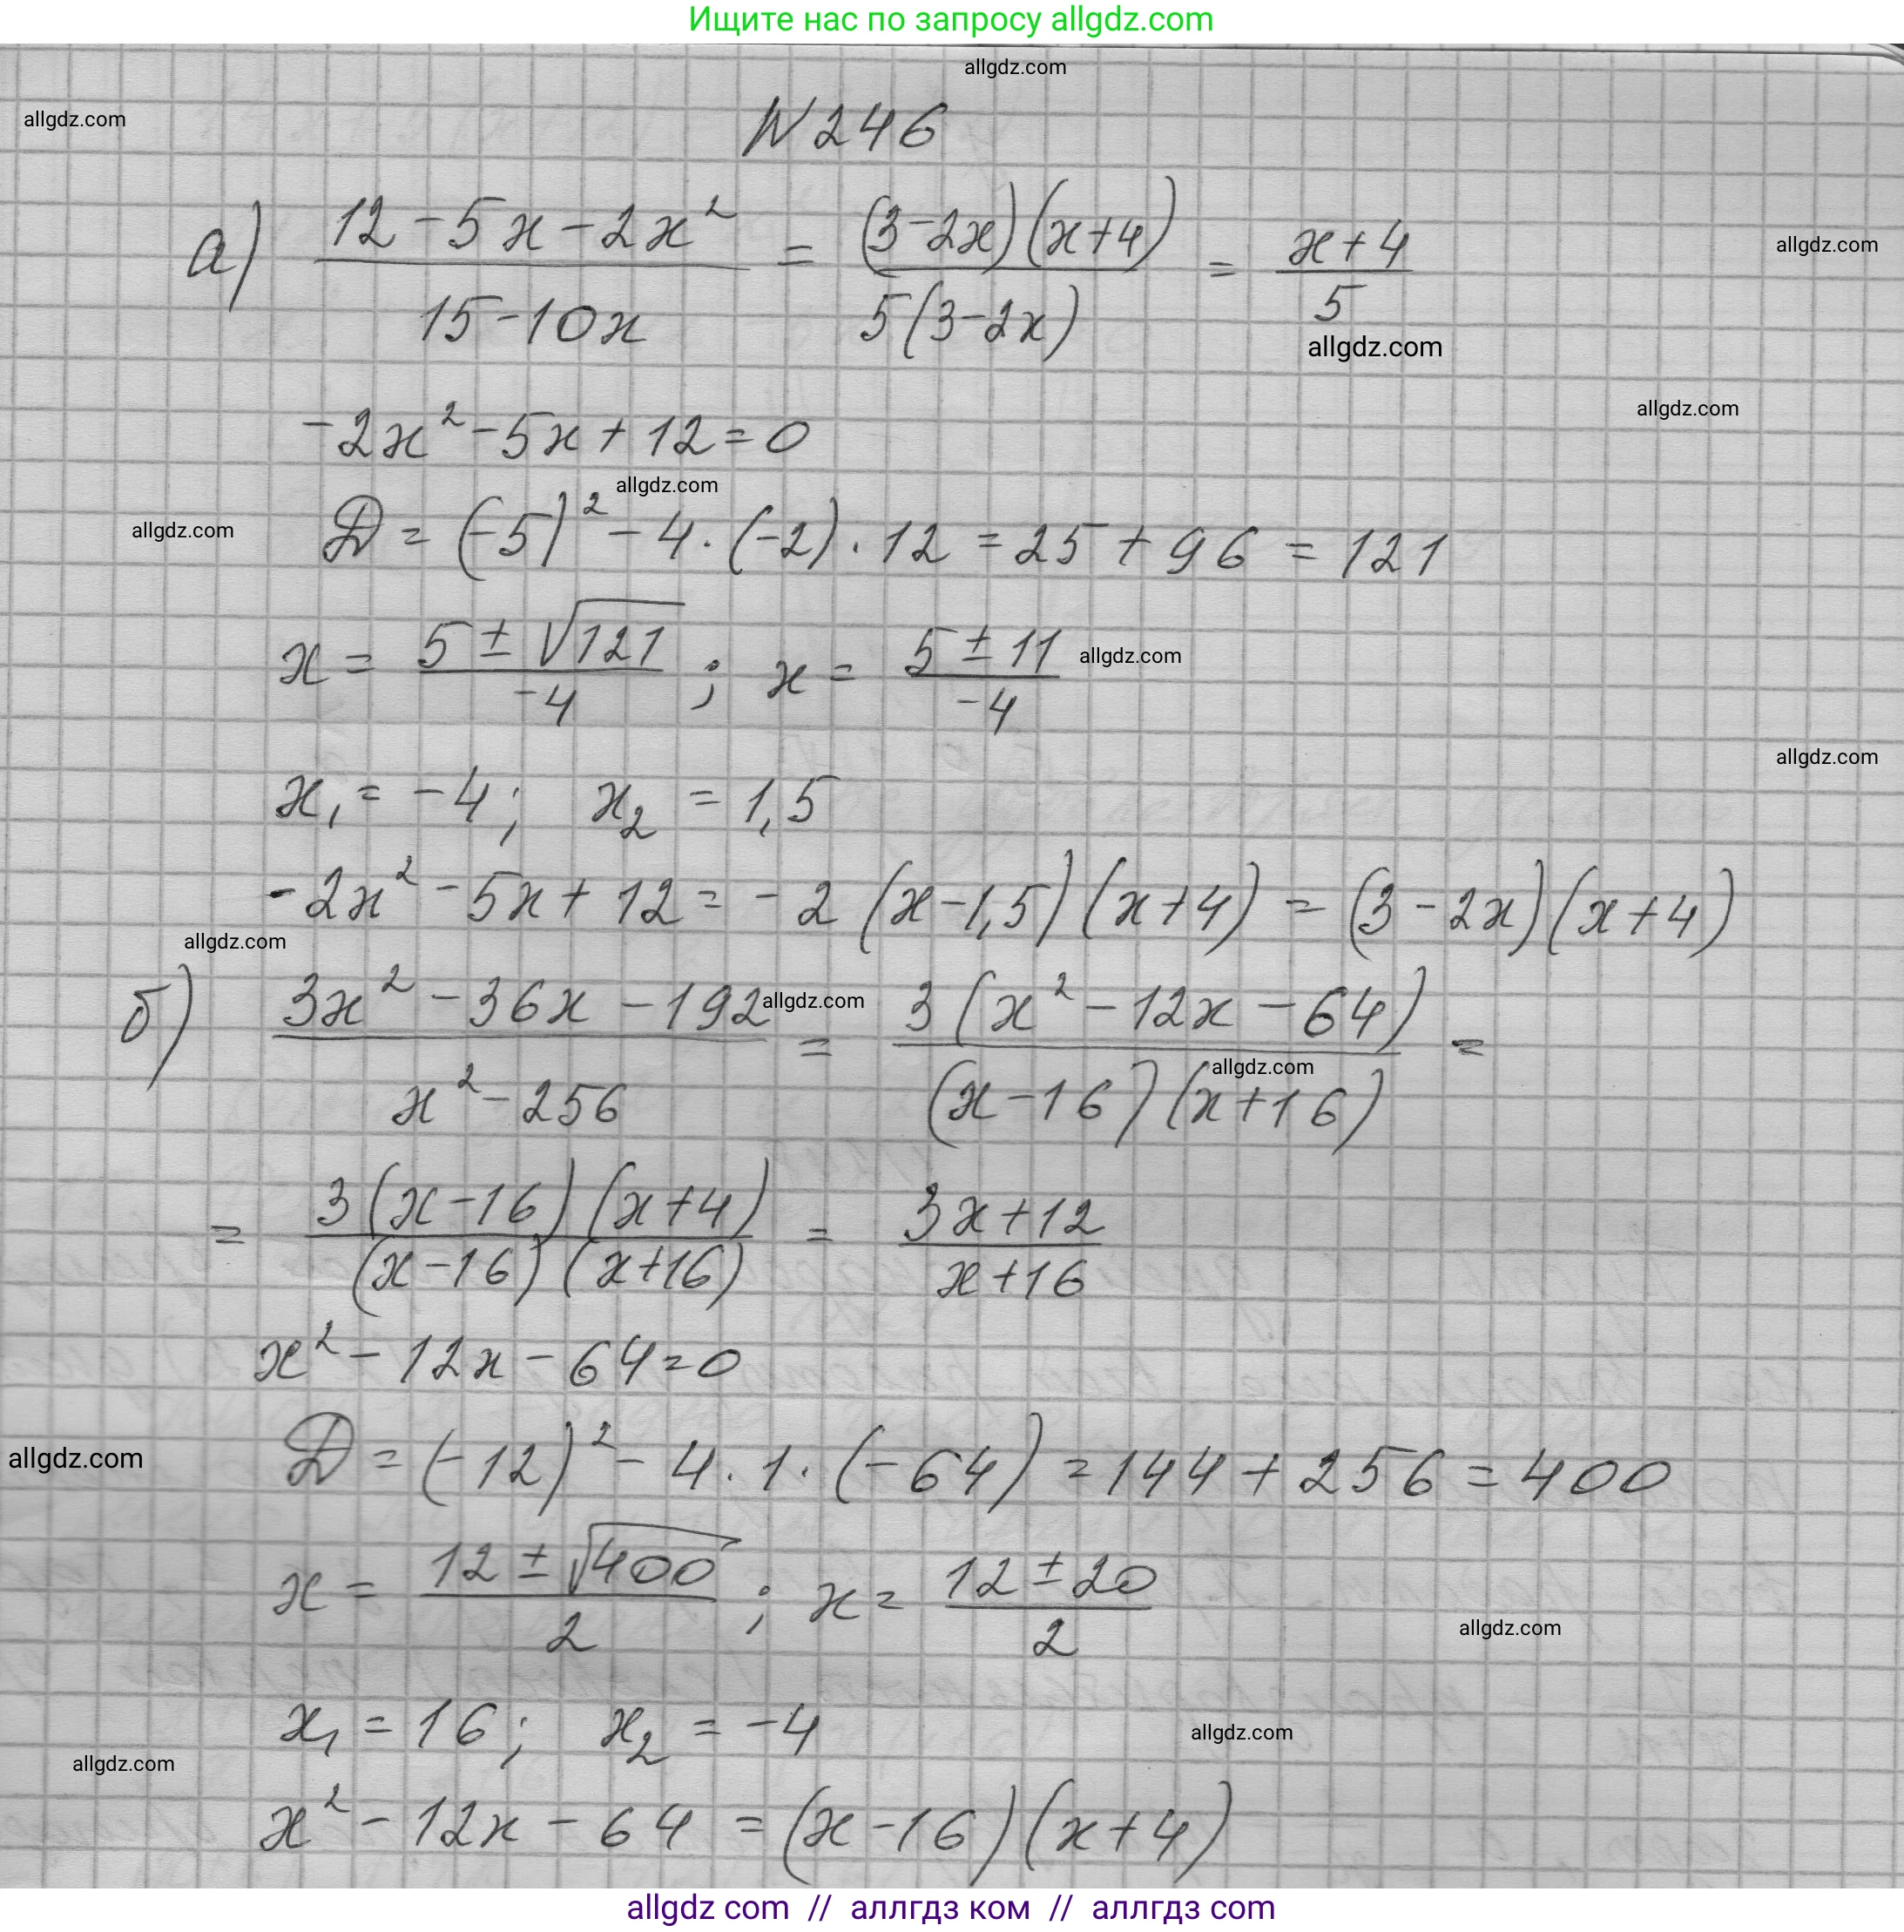 Ищите нас по запросу allgdz.com
allgdz.com
allgdz.com
N 246
а) (12 - 5x - 2x²)/(15 - 10x) = ((3 - 2x)(x + 4))/(5(3 - 2x)) = (x + 4)/5
allgdz.com
allgdz.com
allgdz.com
-2x² - 5x + 12 = 0
allgdz.com
allgdz.com
D = (-5)² - 4 · (-2) · 12 = 25 + 96 = 121
x = (5 ± √121)/(-4) ; x = (5 ± 11)/(-4)
allgdz.com
allgdz.com
x₁ = -4; x₂ = 1,5
-2x² - 5x + 12 = -2 (x - 1,5)(x + 4) = (3 - 2x)(x + 4)
allgdz.com
б) (3x² - 36x - 192)/(x² - 256) = (3(x² - 12x - 64))/((x - 16)(x + 16)) =
allgdz.com
allgdz.com
= (3(x - 16)(x + 4))/((x - 16)(x + 16)) = (3x + 12)/(x + 16)
x² - 12x - 64 = 0
allgdz.com
D = (-12)² - 4 · 1 · (-64) = 144 + 256 = 400
x = (12 ± √400)/2 ; x = (12 ± 20)/2
allgdz.com
x₁ = 16; x₂ = -4
allgdz.com
allgdz.com
x² - 12x - 64 = (x - 16)(x + 4)
allgdz com // аллгдз ком // аллгдз com